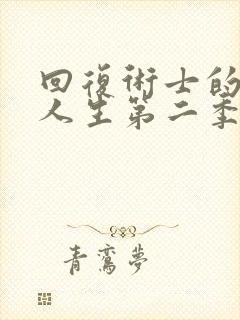 回復術士的
人生第二季
青鸞夢